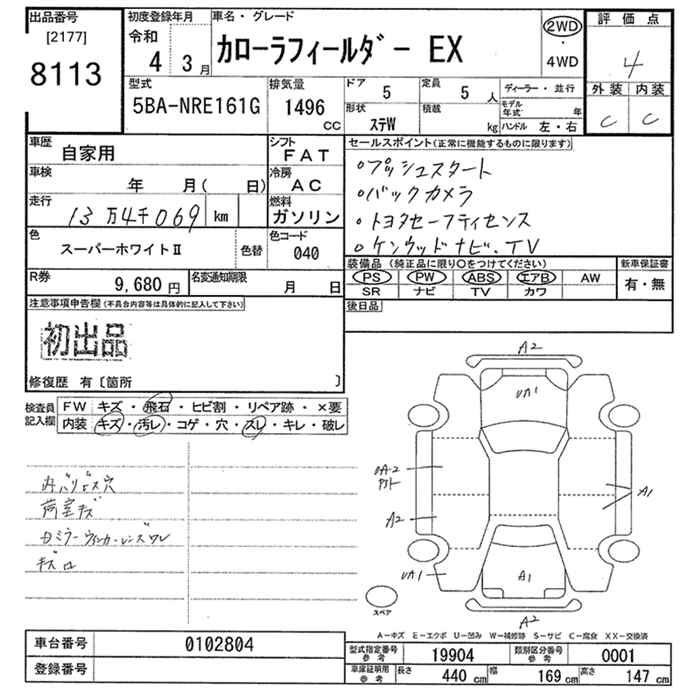 出品番号
[2177]
8113
初度登録年月
令和
4 3月
車名・グレード
カローラフィールダー EX
2WD
・
4WD
評価点
4
外装 内装
C C
型式
5BA-NRE161G
排気量
1496
CC
ドア 5
定員 5 人
形状 ステW
積載 kg
ディーラー・並行
モデル年式 年
ハンドル 左・右
車歴 自家用
シフト FAT
車検 年 月( 日)
冷房 AC
走行 13万4千069 km
燃料 ガソリン
色 スーパーホワイトⅡ
色替
色コード 040
R券 9,680円
名変通知期限 月 日
セールスポイント(正常に機能するものに限ります)
・プッシュスタート
・バックカメラ
・トヨタセーフティセンス
・ケンウッドナビ.TV
装備品(純正品に限り○をつけてください)
PS PW ABS エアB AW
SR ナビ TV カワ
新車保証書
有・無
後日品
注意事項申告欄(不具合内容等は具体的に記入して下さい)
初出品
修復歴 有〔箇所 〕
検査員記入欄
FW キズ・飛石・ヒビ割・リペア跡・×要
内装 キズ・汚レ・コゲ・穴・スレ・キレ・破レ
内バリビス穴
荷室キズ
ミラーウィンカーレンズワレ
キズ
A2
UA1
UA2
A2
A1
UA1
A1
A2
スペア
A−キズ E−エクボ U−凹み W−補修跡 S−サビ C−腐食 XX−交換済
車台番号 0102804
登録番号
型式指定番号参考 19904
類別区分番号参考 0001
車庫証明用参考 長さ 440 cm 幅 169 cm 高さ 147 cm